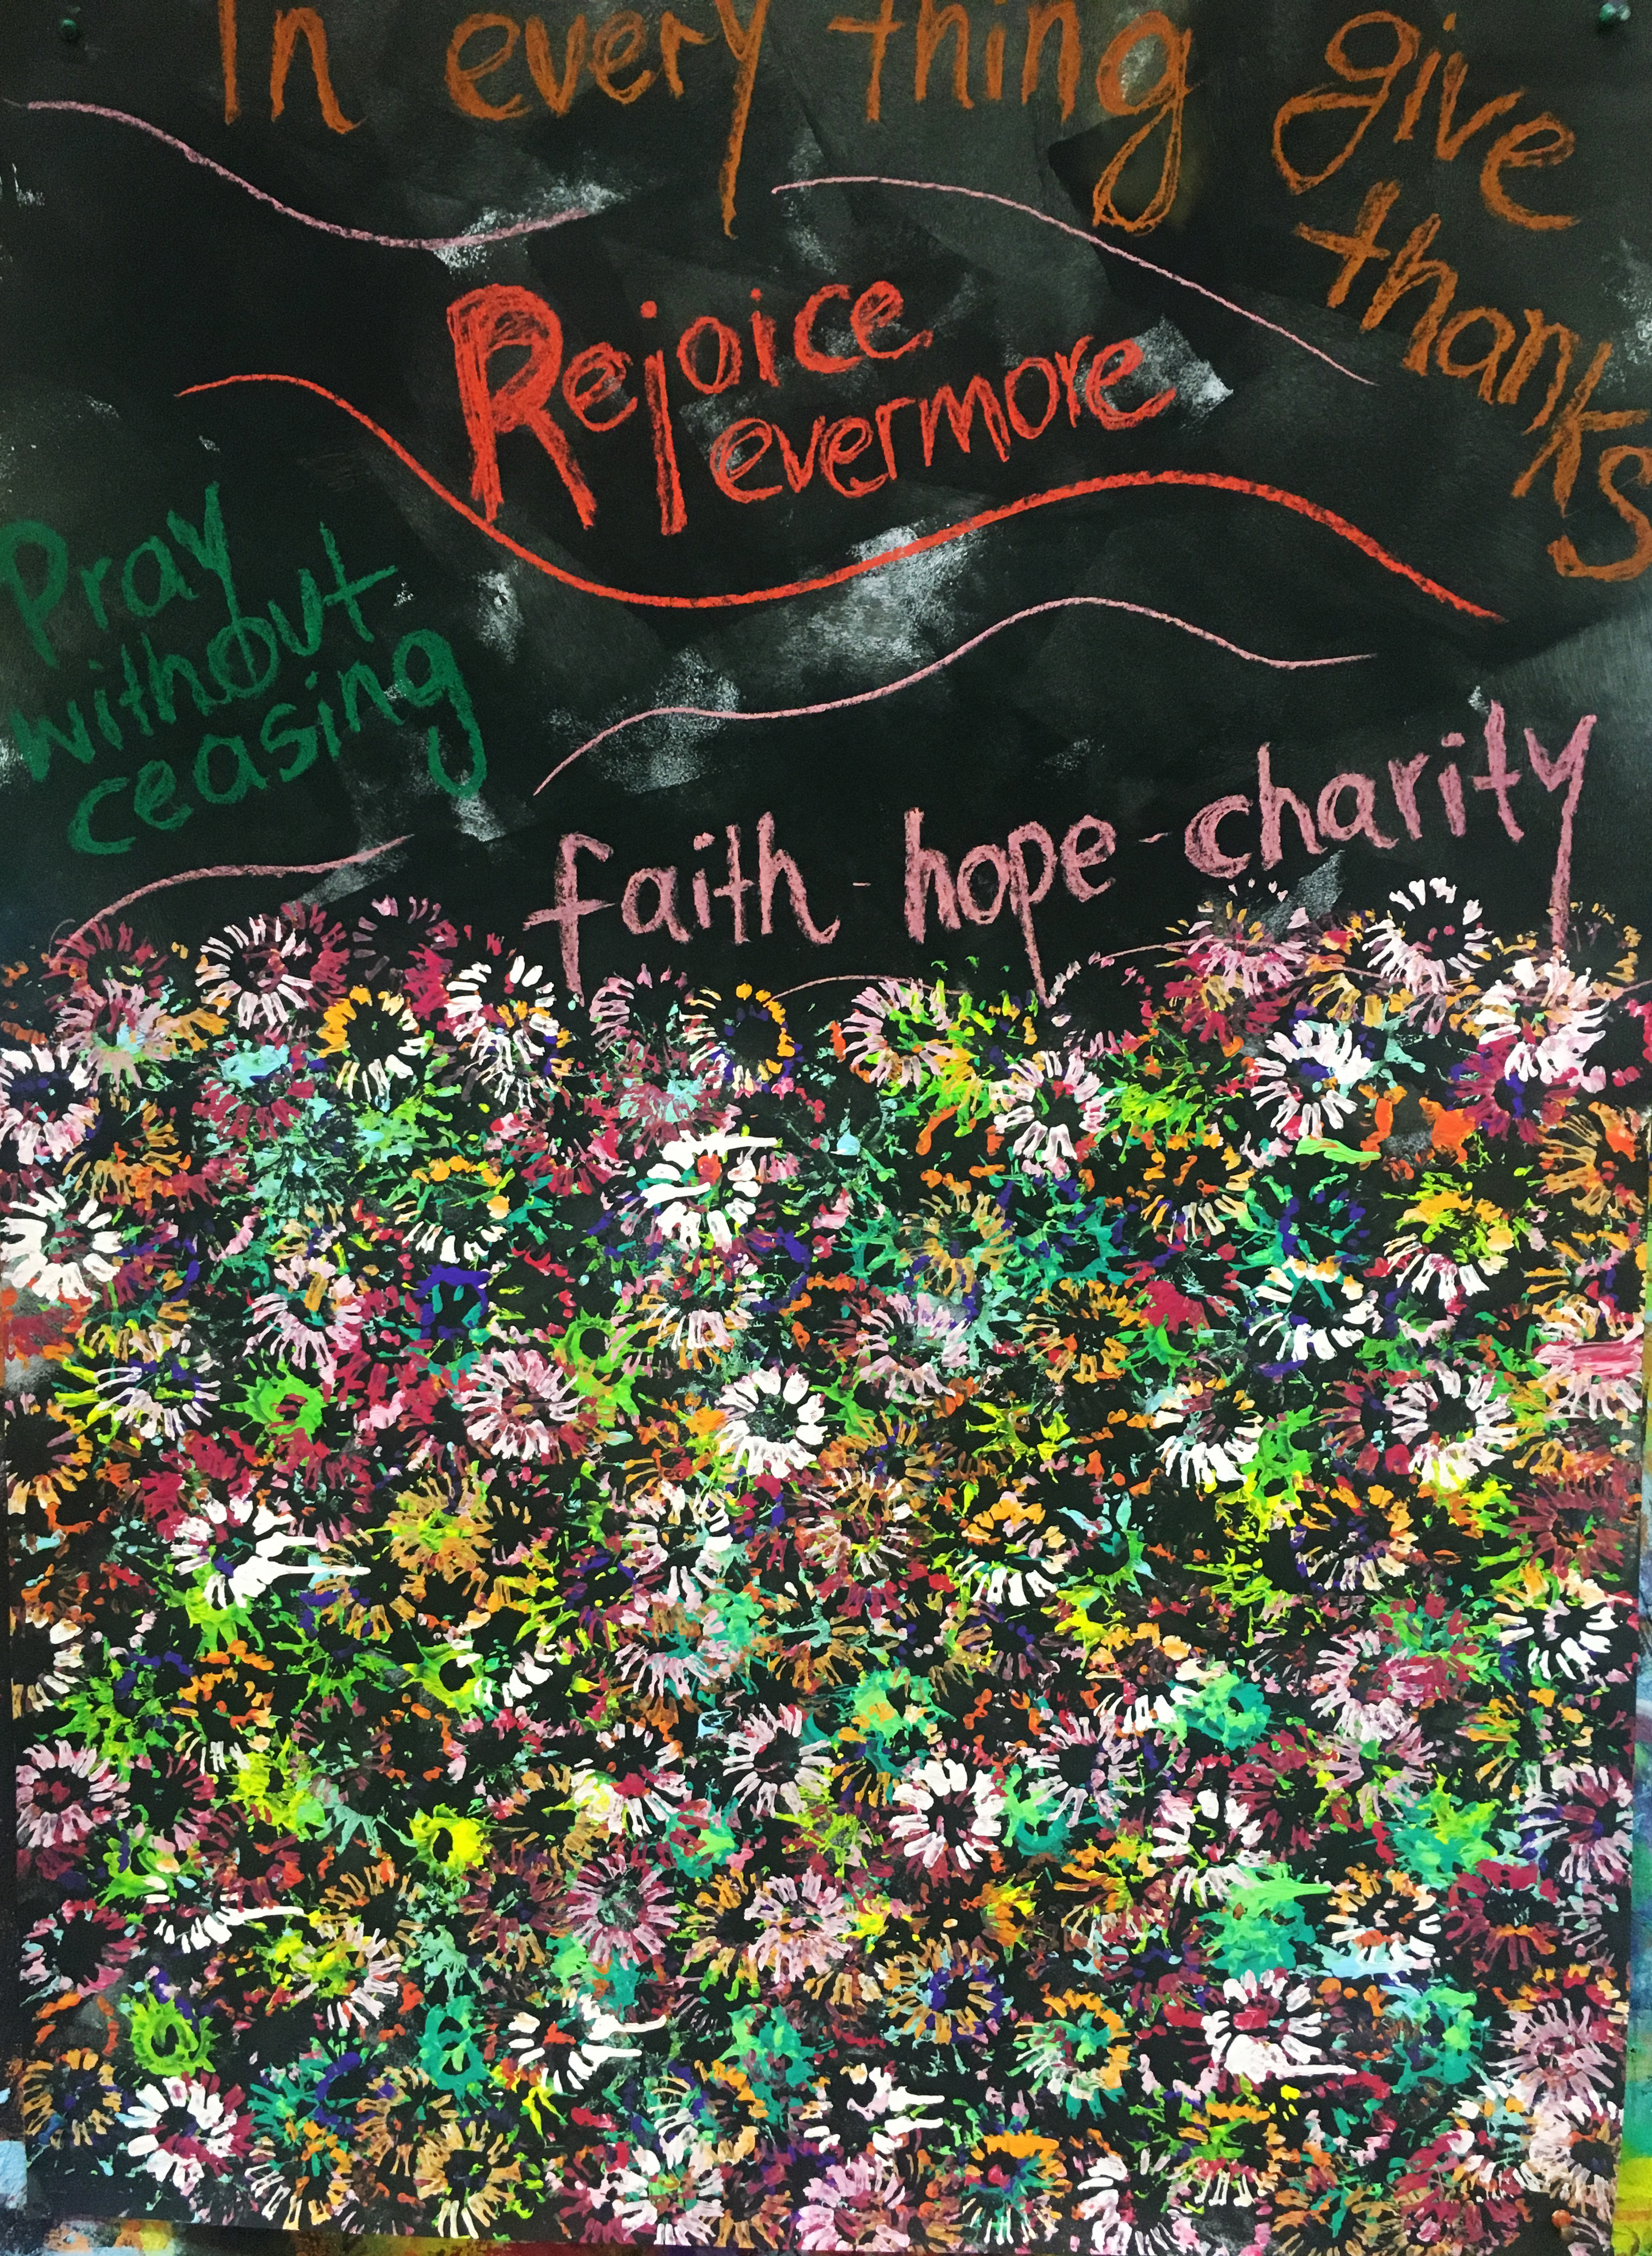 In every thing give
thanks
Rejoice
evermore
Pray
without
ceasing
faith - hope - charity